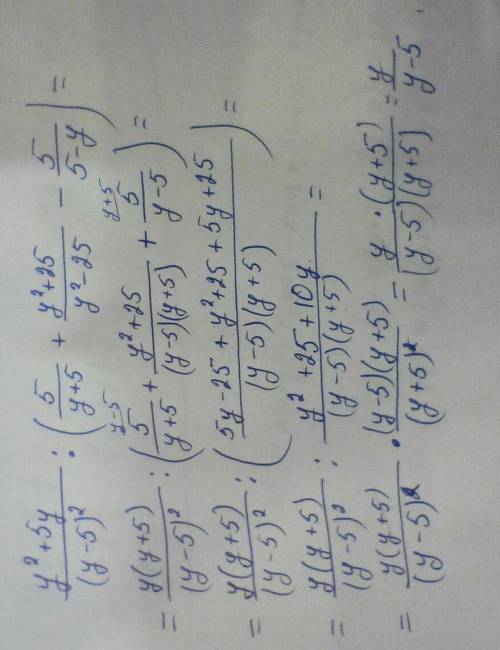 (y²+5y)/(y-5)² : (5/(y+5) + (y²+25)/(y²-25) - 5/(5-y)) =
= y(y+5)/(y-5)² : (5/(y+5) ^(y-5) + (y²+25)/((y-5)(y+5)) + 5/(y-5) ^(y+5)) =
= y(y+5)/(y-5)² : ((5y-25+y²+25+5y+25)/((y-5)(y+5))) =
= y(y+5)/(y-5)² : (y²+25+10y)/((y-5)(y+5)) =
= y(y+5)/(y-5)² · (y-5)(y+5)/(y+5)² = y·(y+5)/((y-5)(y+5)) = y/(y-5)